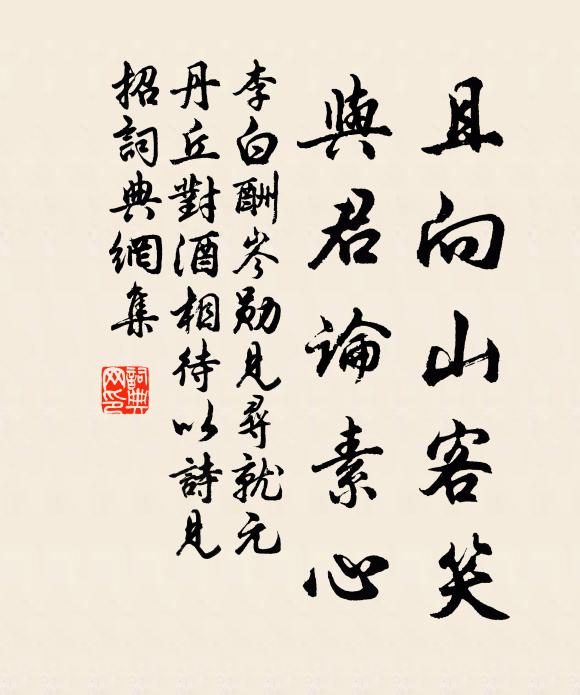 且向山客笑
與君論素心
李白酬岑勛見尋就元
丹丘對酒相待以詩見
招詞典網集
詞典
网印